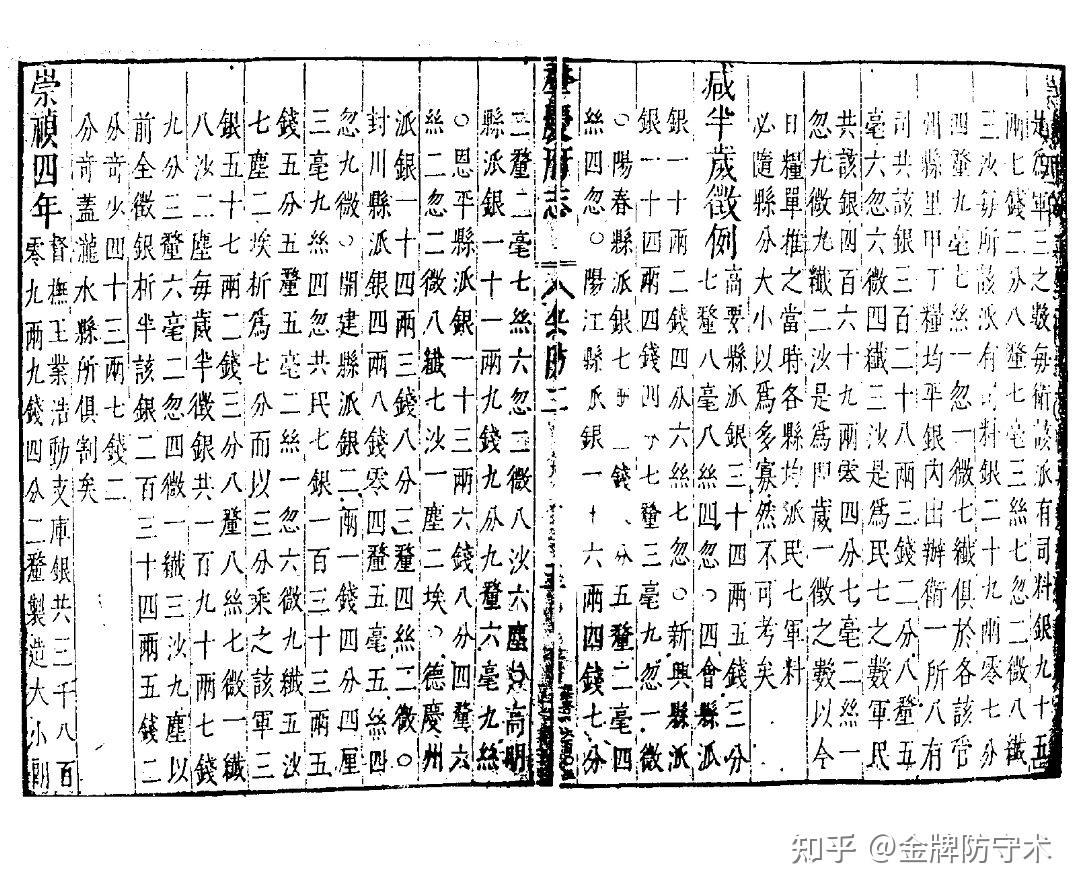 是爲軍三之數每衛該派有司料銀九十五
兩七錢二分八釐七毫三絲七忽二微八纖
三沙每所該派有司料銀二十九兩零七分
四釐九毫七絲一忽一微七纖俱於各該管
州縣里甲丁糧均平銀內出辦衛一所八有
司共該銀三百二十八兩三錢二分八釐五
毫六忽六微四纖三沙是爲民七之數軍民
共該銀四百六十九兩零四分七毫二絲一
忽九微九纖二沙是爲門歲一徵之數以今
日糧單推之當時各縣均派民七軍料
必隨縣分大小以爲多寡然不可考矣
減半歲徵例
高要縣派銀三十四兩五錢三分
七釐八毫八絲四忽○四會縣派
銀一十兩二錢四分六絲七忽○新興縣派
銀一十四兩四錢四分七釐三毫九忽一微
○陽春縣派銀七兩二錢 分五釐二毫四
絲四忽○陽江縣派銀一十六兩四錢七分
肇慶府志
三釐二毫七絲六忽二微八沙六塵 高明
縣派銀一十一兩九錢九分九釐六毫九絲
○恩平縣派銀一十三兩六錢八分四釐六
絲二忽二微八纖七沙一塵二埃○德慶州
派銀一十四兩三錢八分三釐四絲二微○
封川縣派銀四兩八錢零四釐五毫五絲四
忽九微○開建縣派銀二兩一錢四分四厘
三毫九絲四忽共民七銀一百三十三兩五
錢五分五釐五毫二絲一忽六微九纖五沙
七塵二埃析爲七分而以三分乘之該軍三
銀五十七兩二錢三分八釐八絲七微一纖
八沙二塵每歲半徵銀共一百九十兩七錢
九分三釐六毫二忽四微一纖三沙九塵以
前全徵銀析半該銀二百三十四兩五錢二
分奇少四十三兩七錢二
分奇蓋瀧水縣所俱割矣
崇禎四年
督撫王業浩動支庫銀共三千八百
零九兩九錢四分二釐製造大小閗
知乎 @金牌防守术